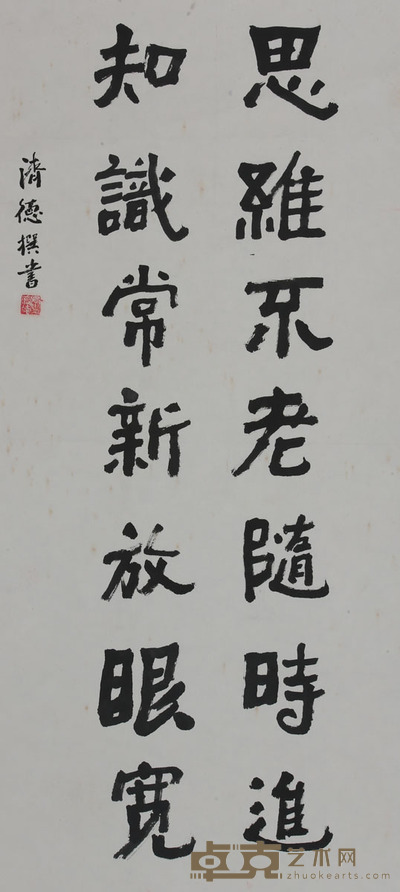 思維不老隨時進
知識常新放眼宽
濟德撰書
卓克艺术网
zhuokearts.com